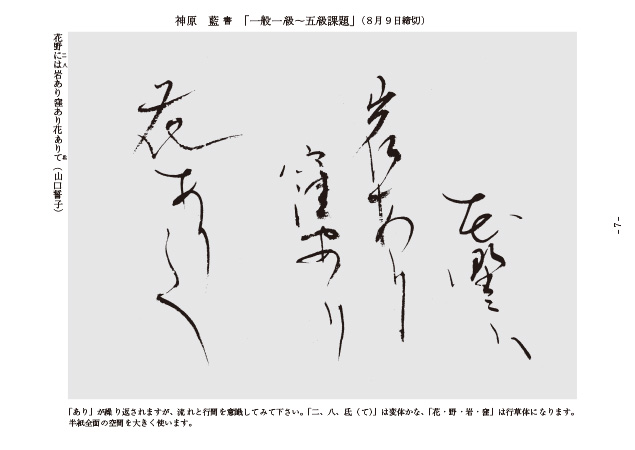 神原 藍 書 「一般一級～五級課題」（８月９日締切）
花野には岩あり窪あり花ありて（山口誓子）
ニ八
氐
花野ニハ
岩あり
窪あり
花あり氐
「あり」が繰り返されますが、流れと行間を意識してみて下さい。「ニ、八、氐（て）」は変体かな、「花・野・岩・窪」は行草体になります。
半紙全面の空間を大きく使います。
-7-